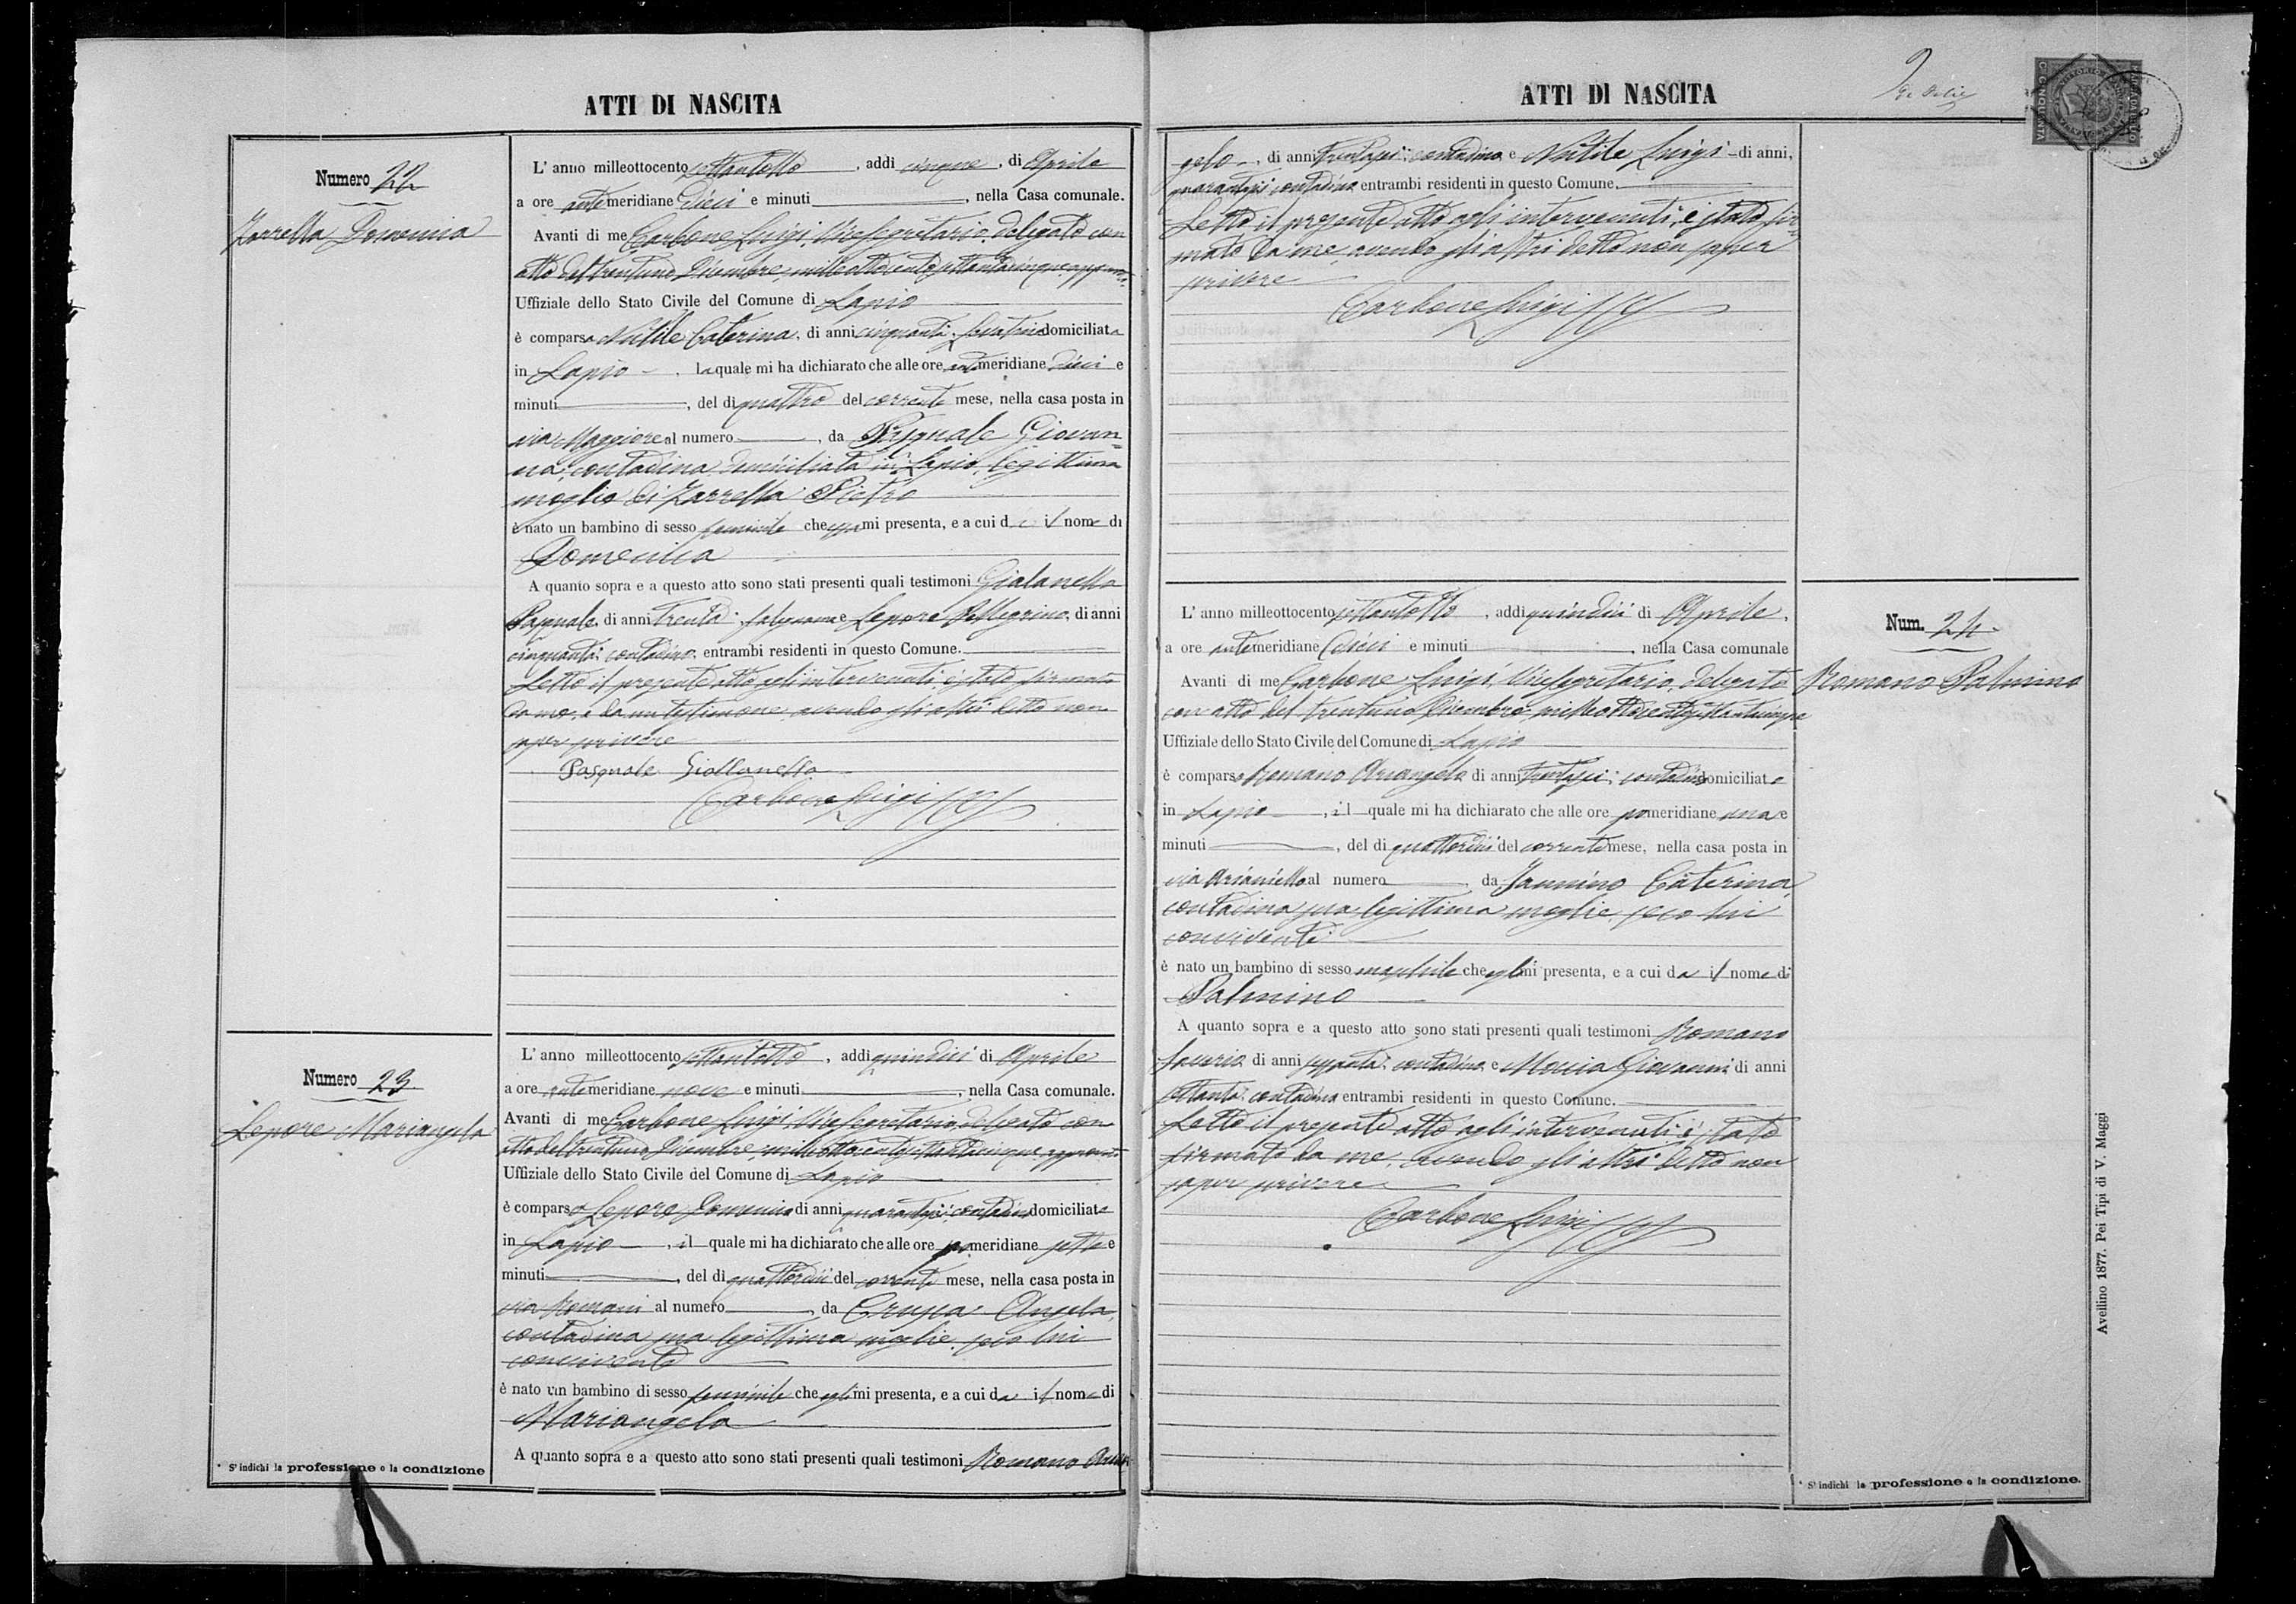 ATTI DI NASCITA
Numero 22
Zarrella Domenica
L' anno milleottocento settantotto, addì cinque, di Aprile
a ore antemeridiane dieci e minuti , nella Casa comunale.
Avanti di me Carbone Luigi, Vicesegretario, delegato con
atto del trentuno Dicembre, milleottocentosettantacinque, approvato
Uffiziale dello Stato Civile del Comune di Lapio
è comparsa Nutile Caterina, di anni cinquanta, domiciliata
in Lapio, la quale mi ha dichiarato che alle ore antimeridiane dieci e
minuti , del dì quattro del corrente mese, nella casa posta in
via Maggiore al numero , da Pasquale Giovan=
na, contadina domiciliata in Lapio, legittima
moglie di Zarrella Pietro
è nato un bambino di sesso feminile che essa mi presenta, e a cui dà il nome di
Domenica
A quanto sopra e a questo atto sono stati presenti quali testimoni Gialanella
Pasquale, di anni trenta, falegname e Lepore Pellegrino, di anni
cinquanta, contadino, entrambi residenti in questo Comune.
Letto il presente atto agli intervenuti, è stato firmato
da me, e da un testimone, avendo gli altri detto non
saper scrivere
Pasquale Giallanella
Carbone Luigi
Numero 23
Lepore Mariangela
L' anno milleottocento settantotto, addì quindici di Aprile
a ore antemeridiane nove e minuti , nella Casa comunale.
Avanti di me Carbone Luigi, Vicesegretario, delegato con
atto del trentuno Dicembre, milleottocentosettantacinque, approvato
Uffiziale dello Stato Civile del Comune di Lapio
è comparso Lepore Domenico di anni quarantasei, contadino domiciliato
in Lapio, il quale mi ha dichiarato che alle ore pomeridiane sette e
minuti , del dì quattordici del corrente mese, nella casa posta in
via Romani al numero , da Crupa Angela,
contadina sua legittima moglie, seco lui
convivente
è nato un bambino di sesso feminile che egli mi presenta, e a cui dà il nome di
Mariangela
A quanto sopra e a questo atto sono stati presenti quali testimoni Romano Arian
* S' indichi la professione o la condizione
ATTI DI NASCITA
gelo, di anni trentasei, contadino e Nutile Luigi di anni,
quarantasei contadino entrambi residenti in questo Comune.
Letto il presente atto agli intervenuti, è stato fir=
mato da me, avendo gli altri detto non saper
scrivere
Carbone Luigi
Num. 24.
Romano Palmino
L' anno milleottocento settantotto, addì quindici di Aprile,
a ore antemeridiane dieci e minuti , nella Casa comunale
Avanti di me Carbone Luigi, Vicesegretario, delegato
con atto del trentuno Dicembre milleottocentosettantacinque
Uffiziale dello Stato Civile del Comune di Lapio
è comparso Romano Ariangelo di anni trentasei, contadino domiciliato
in Lapio, il quale mi ha dichiarato che alle ore pomeridiane una e
minuti , del dì quattordici del corrente mese, nella casa posta in
via Arianiello al numero da Jannino Caterina,
contadina sua legittima moglie, seco lui
convivente
è nato un bambino di sesso maschile che egli mi presenta, e a cui dà il nome di
Palmino
A quanto sopra e a questo atto sono stati presenti quali testimoni Romano
Saverio di anni sessanta, contadino, e Giovanni di anni
settanta, contadino entrambi residenti in questo Comune.
Letto il presente atto agli intervenuti è stato
firmato da me, avendo gli altri detto non
saper scrivere
Carbone Luigi
* S' indichi la professione o la condizione.
Avellino 1877. Pei Tipi di V. Maggi